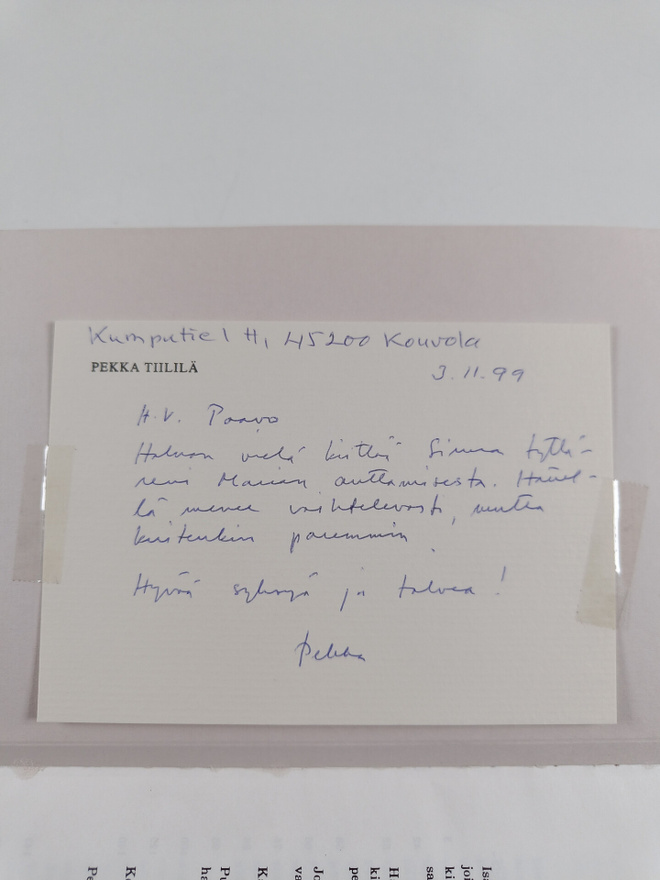 Kumputie 1 H, 45200 Kouvola
PEKKA TIILILÄ
3.11.99
H.V. Paavo
Haluan vielä kiittää Sinua tyttä-
reni Marian auttamisesta. Hänel-
lä menee vaihtelevasti, mutta
kuitenkin paremmin.
Hyvää syksyä ja talvea!
Pekka
Pe
Ke
ha
Pu
K
va
Jo
pe
ki
H
sa
ki
joi
Isä